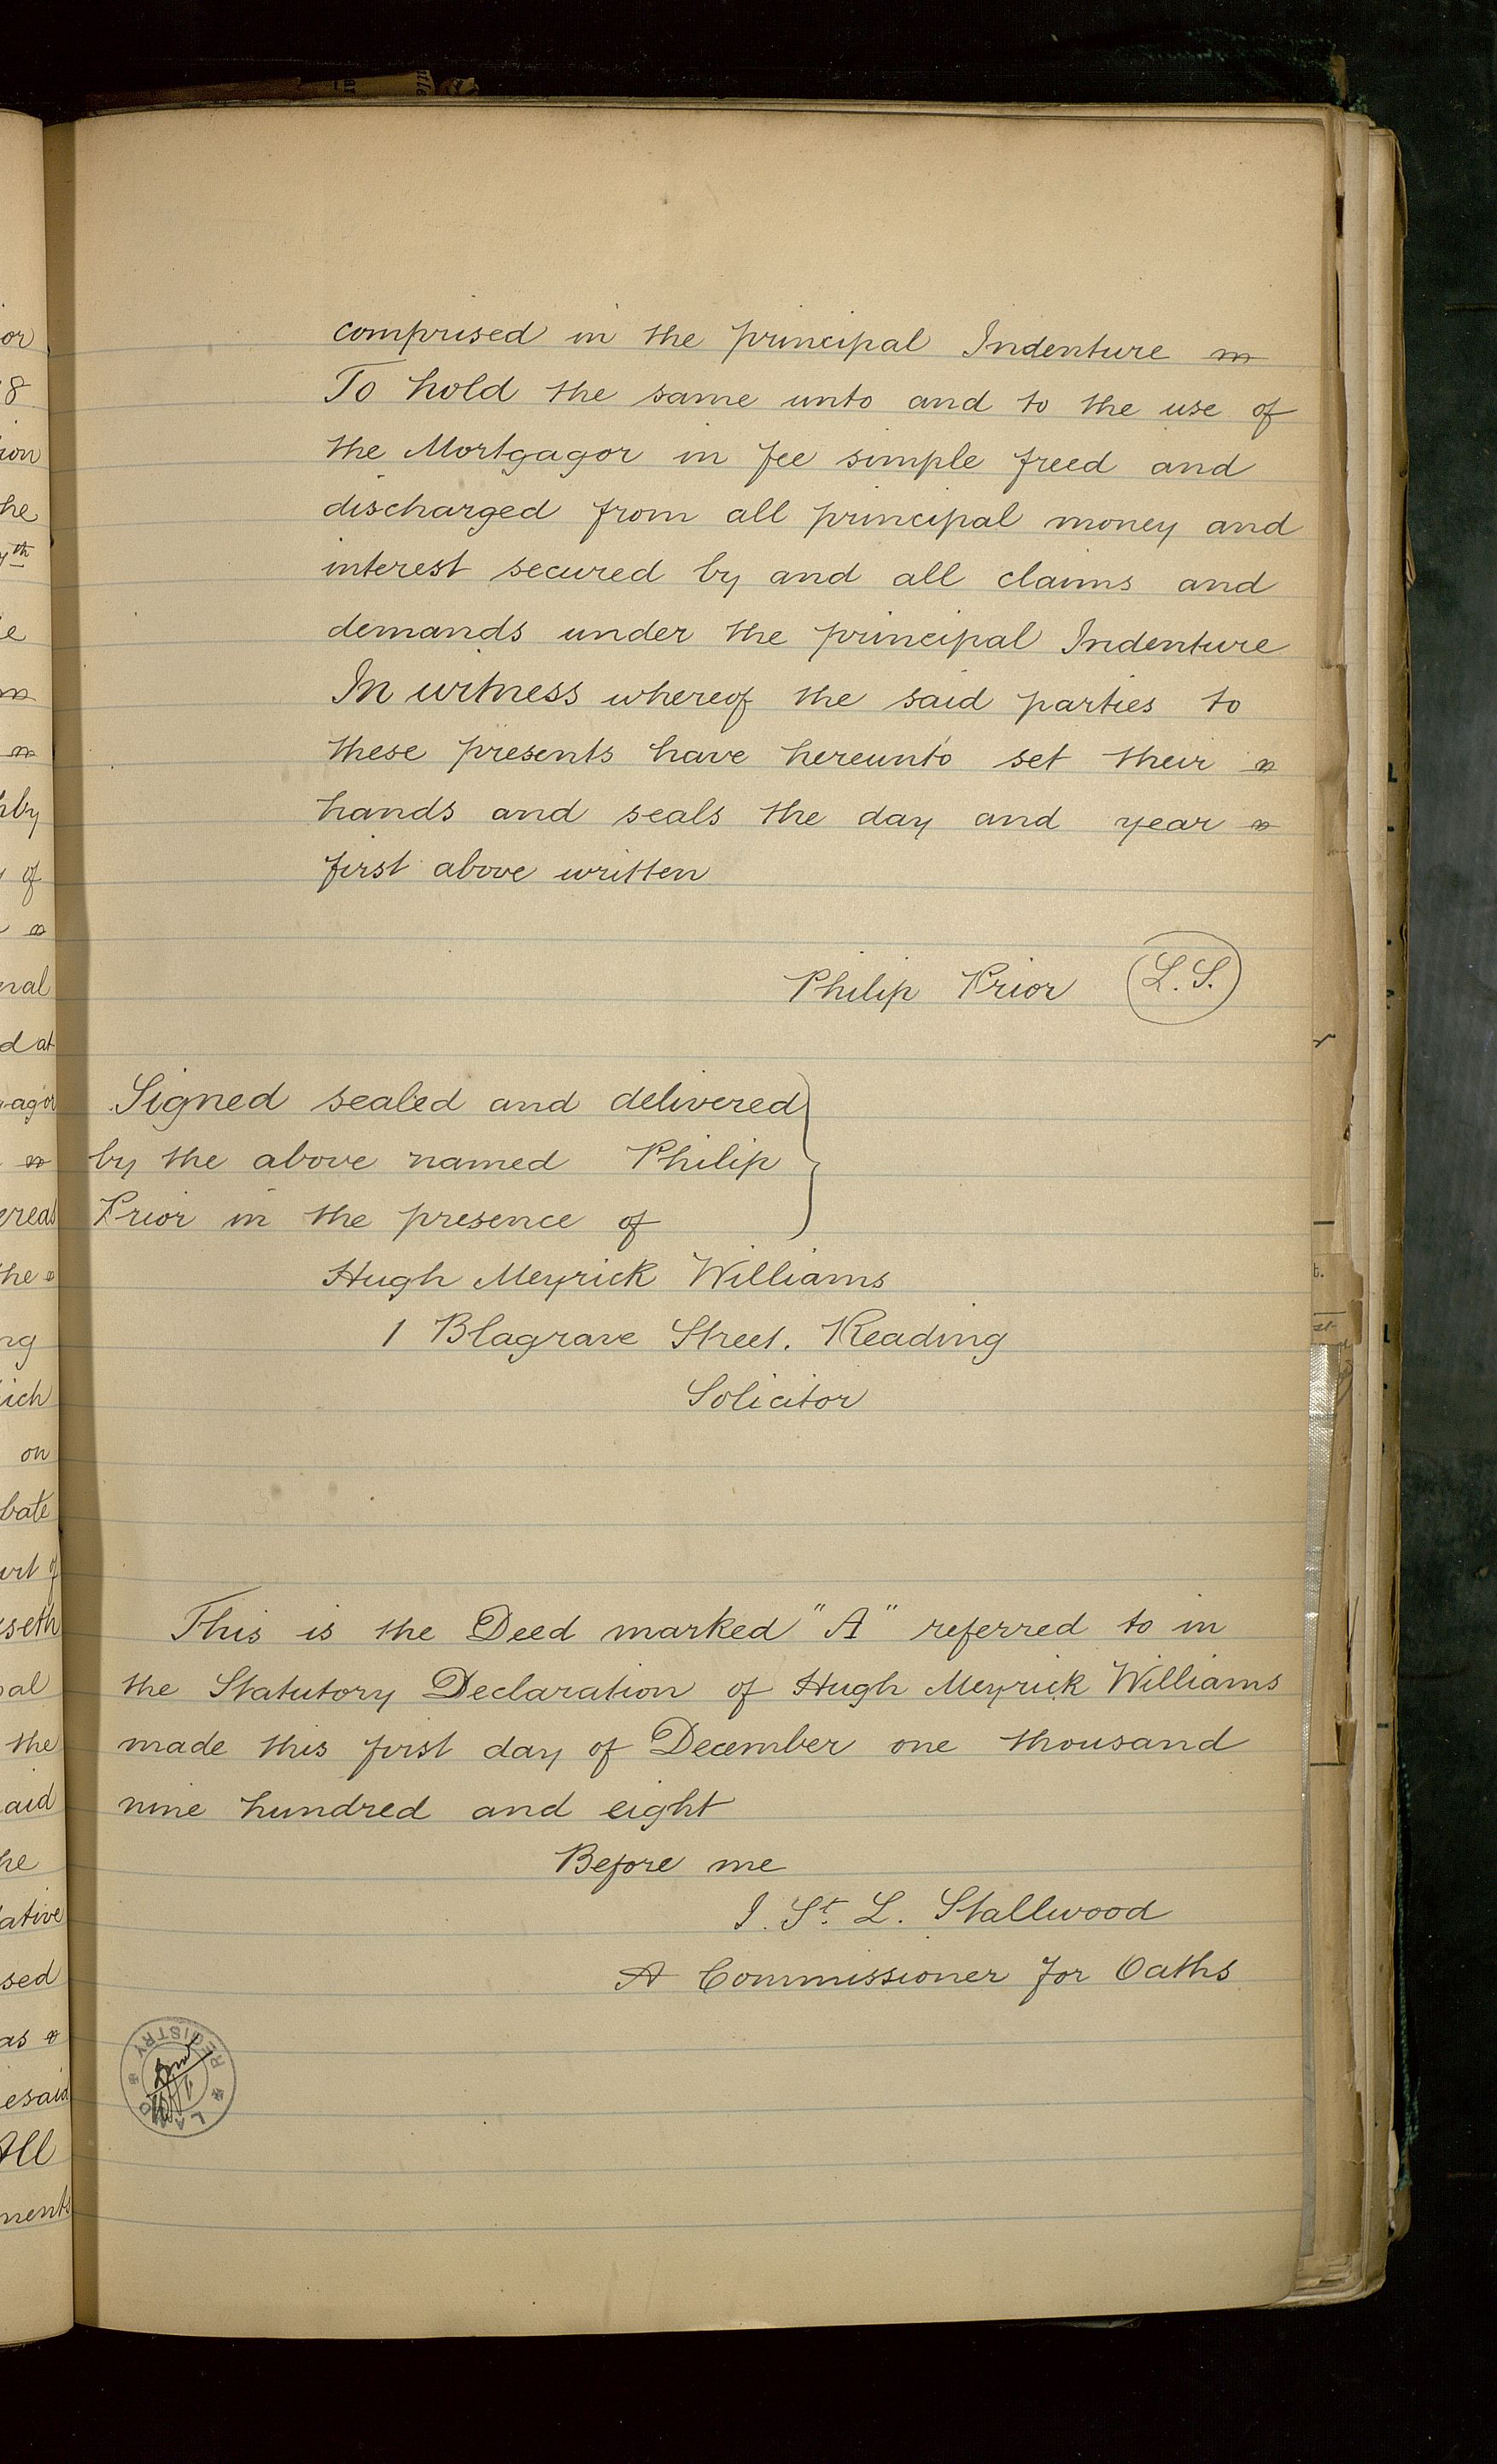 comprised in the principal Indenture
To hold the same unto and to the use of
the Mortgagor in fee simple freed and
discharged from all principal money and
interest secured by and all claims and
demands under the principal Indenture
In witness whereof the said parties to
these presents have hereunto set their
hands and seals the day and year
first above written
Philip Prior L.S.
Signed sealed and delivered
by the above named Philip
Prior in the presence of
Hugh Meyrick Williams
1 Blagrave Street. Reading
Solicitor
This is the Deed marked "A" referred to in
the Statutory Declaration of Hugh Meyrick Williams
made this first day of December one thousand
nine hundred and eight
Before me
J. St. L. Stallwood
A Commissioner for Oaths
LAND REGISTRY